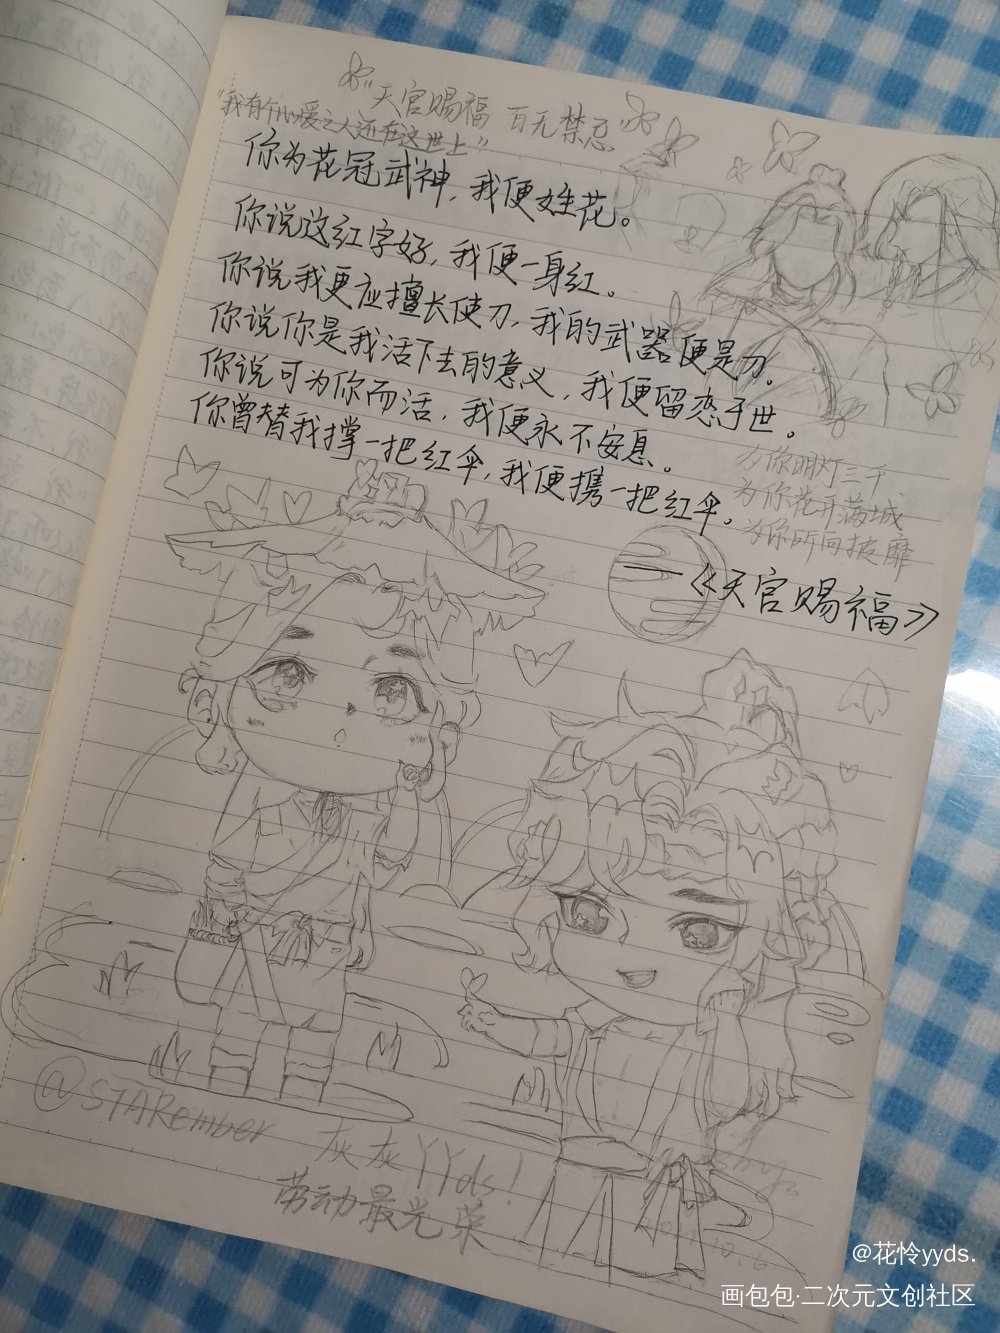 “天官赐福 百无禁忌”
“我有个心爱之人还在这世上”
你为花冠武神，我便姓花。
你说这红字好，我便一身红。
你说我更应擅长使刀，我的武器便是刀。
你说你是我活下去的意义，我便留恋于世。
你说可为你而活，我便永不安息。
你曾替我撑一把红伞，我便携一把红伞。
为你明灯三千
为你花开满城
为你所向披靡
——《天官赐福》
@STARember
灰灰YYds！
劳动最光荣
@花怜yyds.
画包包·二次元文创社区